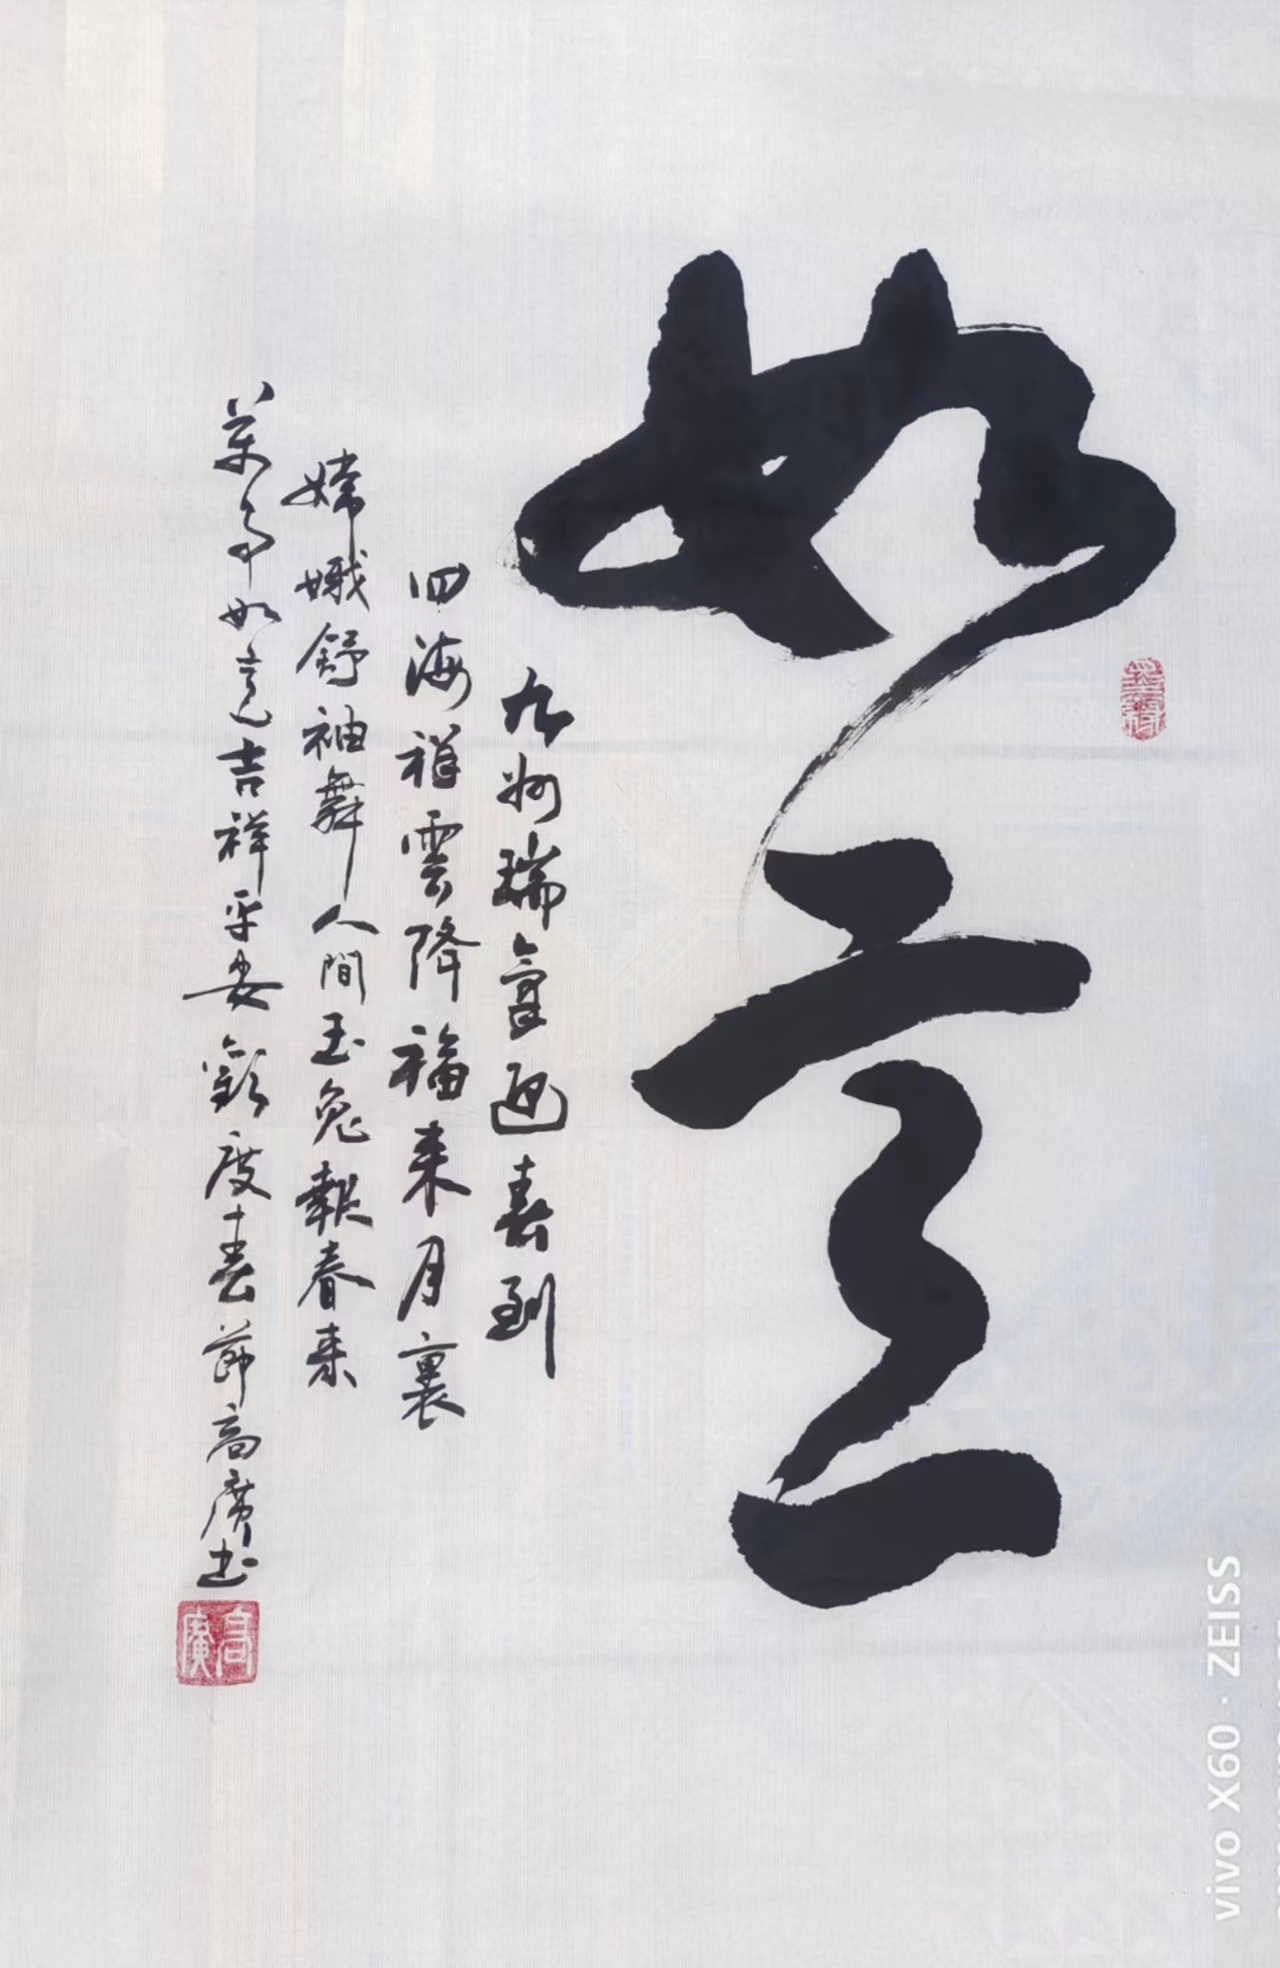 如意
九州瑞氣迎春到
四海祥雲降福來月裏
嫦娥舒袖舞人間玉兔報春来
萬事如意吉祥平安歡度春節高廣书
高廣
vivo X60 · ZEISS